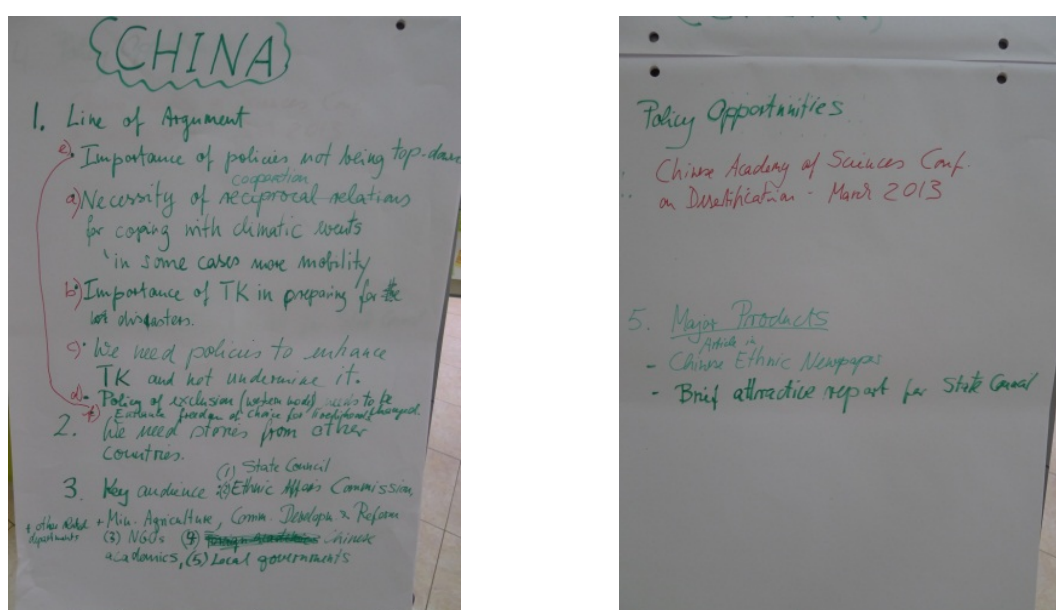 CHINA
1. Line of Argument
e) Importance of policies not being top-down
cooperation
a) Necessity of reciprocal relations
for coping with climatic events
in some cases more mobility
b) Importance of TK in preparing for
disasters.
c) We need policies to enhance
TK and not undermine it.
d) - Policy of exclusion (western model) needs to be
changed
f) freedom of choice for
2. We need stories from other
countries.
3. Key audience (1) State Council
(2) Ethnic Affairs Commission
+ Min. Agriculture, Comm. Developm. & Reform
+ other related
departments
(3) NGOs (4) Chinese
academics, (5) Local governments
Policy Opportunities
Chinese Academy of Sciences Conf.
on Desertification - March 2013
5. Major Products
Article in
- Chinese Ethnic Newspaper
- Brief attractive report for State Council